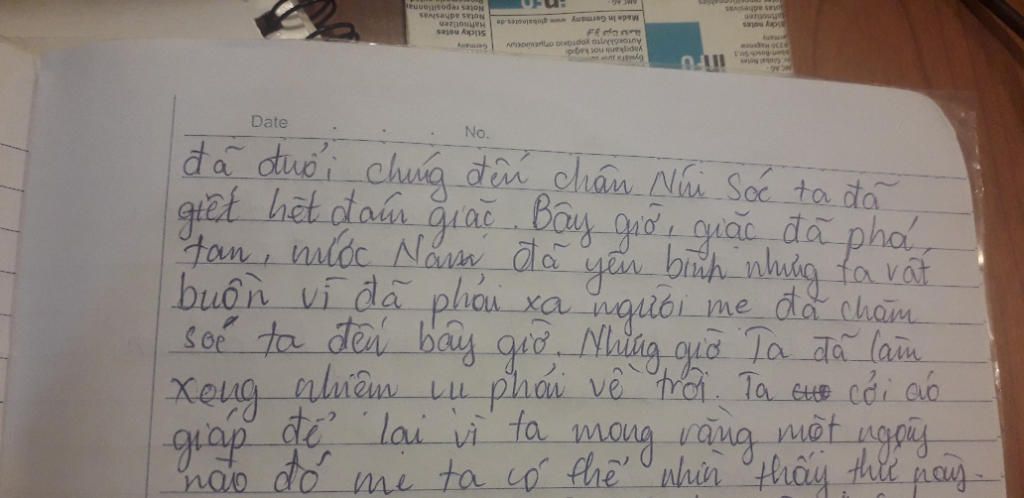 info
AMC AG -
Made in Germany www.globalnotes.de
Sticky notes
Haftnotizen
Notas adhesivas
Notes repositionnables
Germany
Date . . . No.
đã đuổi chúng đến chân Núi Sóc ta đã
giết hết đám giặc. Bây giờ, giặc đã phá
tan, nước Nam đã yên bình nhưng ta vất
buồn vì đã phải xa người mẹ đã chăm
sóc ta đến bây giờ. Nhưng giờ Ta đã làm
xong nhiệm vụ phải về trời. Ta cởi áo
giáp để lại vì ta mong rằng một ngày
nào đó mẹ ta có thể nhìn thấy thứ này.